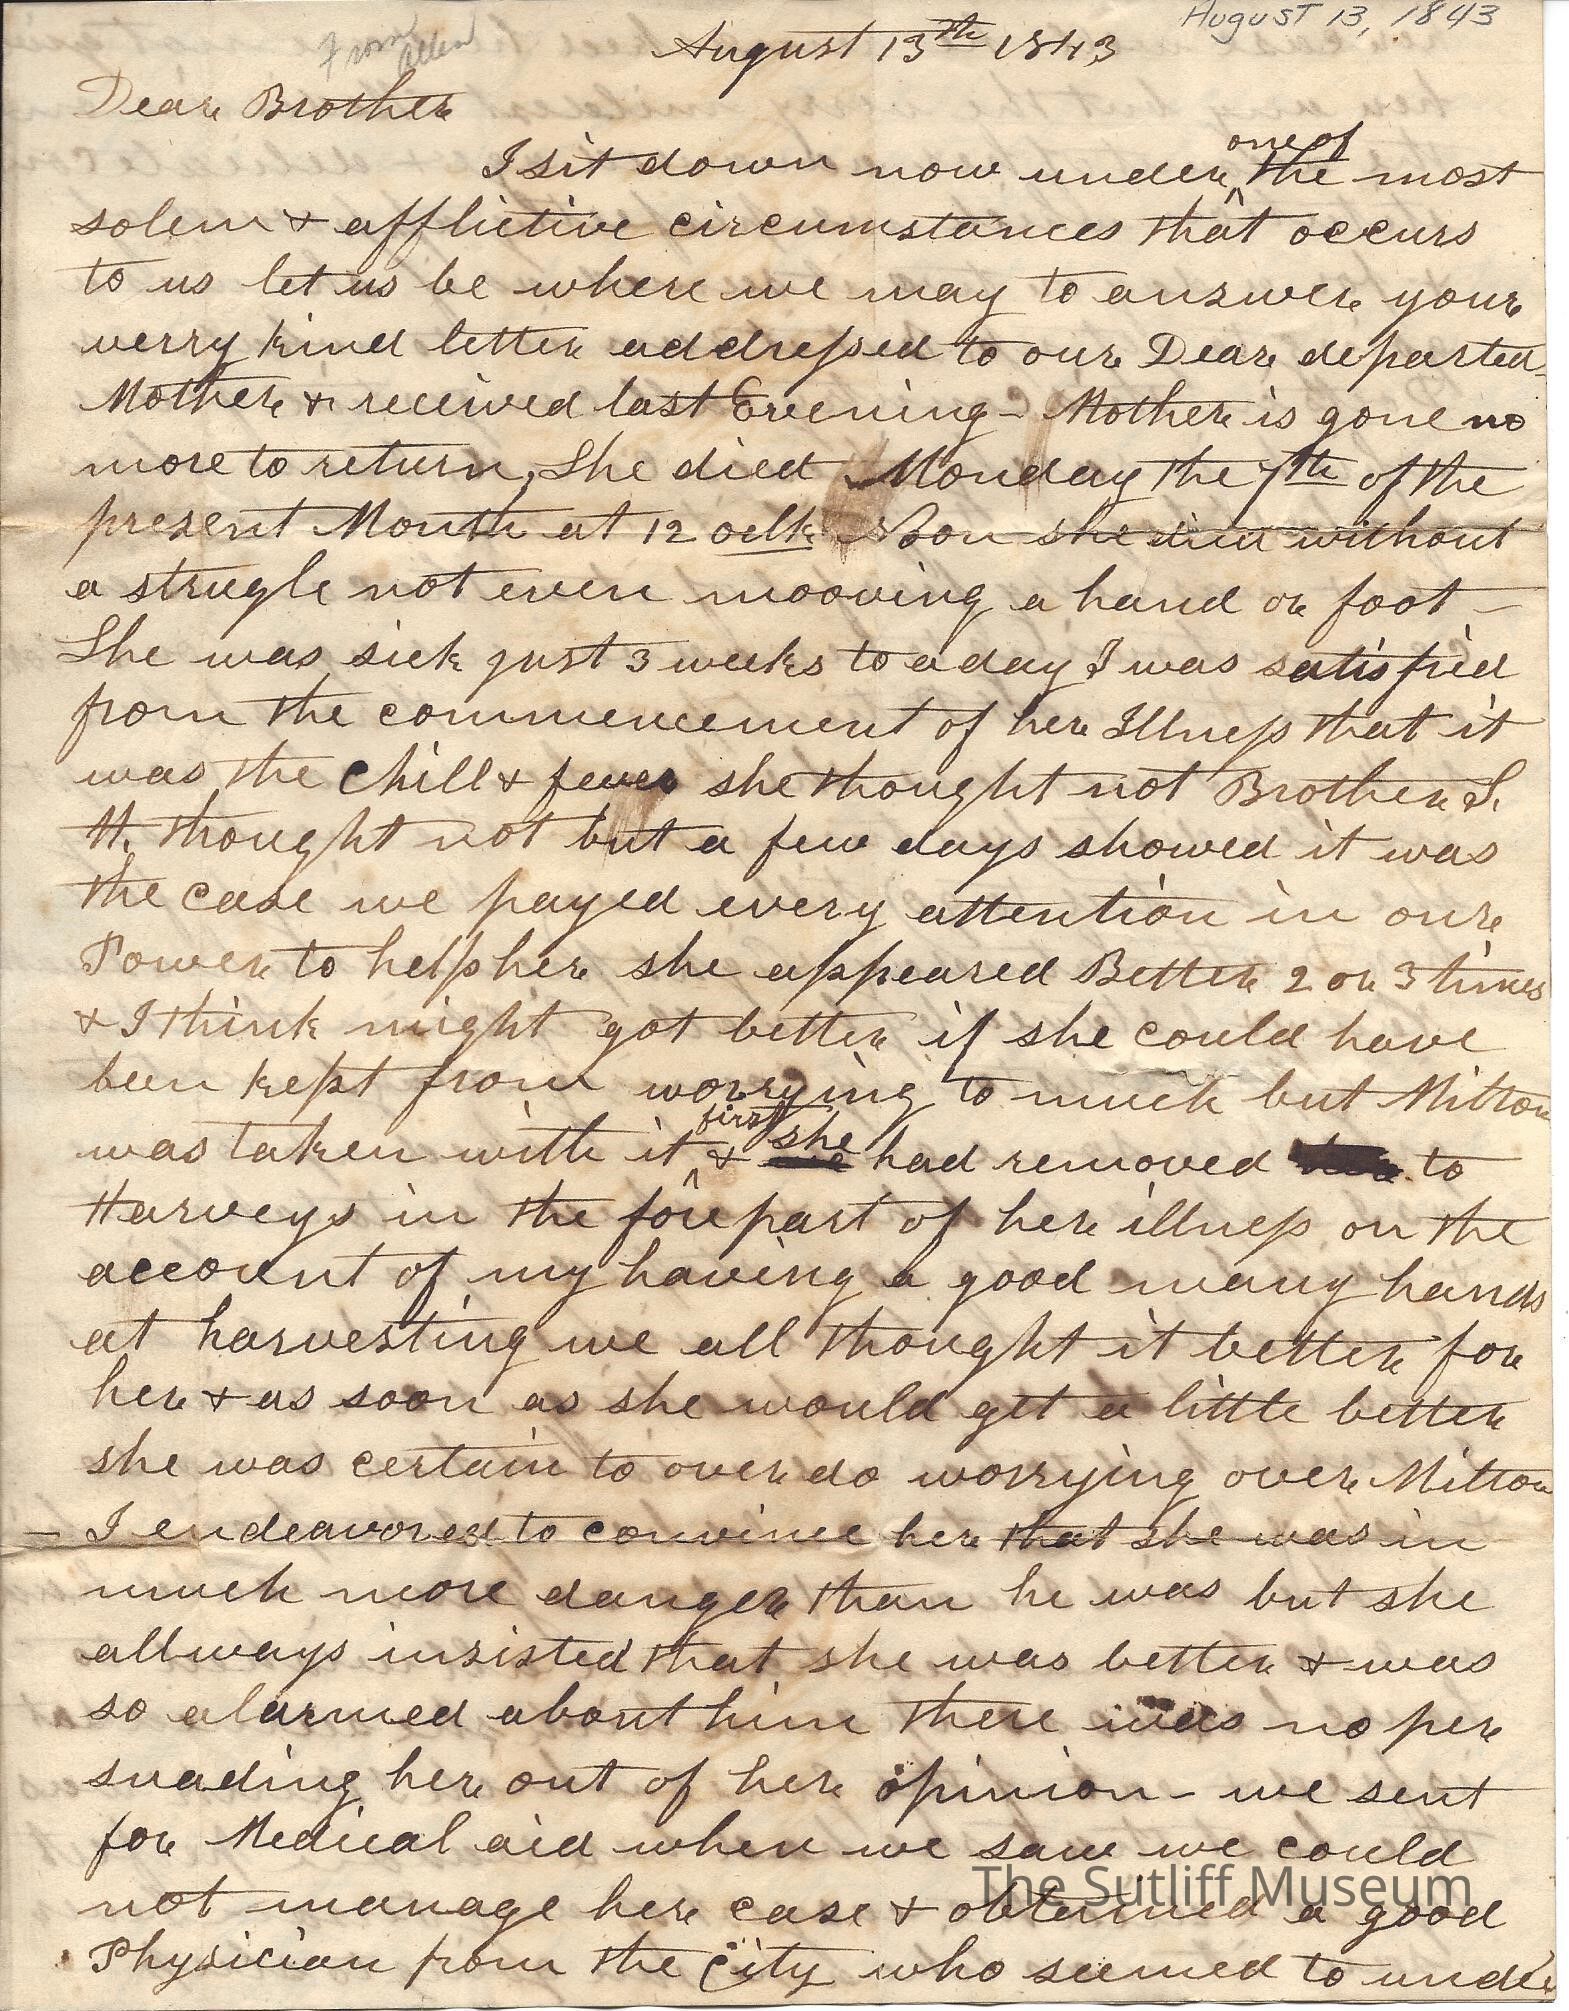 August 13, 1843
From Allen
August 13th 1843
Dear Brother
I sit down now under one of the most
solem & afflictive circumstances that occurs
to us let us be where we may to answer your
verry kind letter addressed to our Dear departed
Mother & received last Evening - Mother is gone no
more to return, She died Monday the 7th of the
present Month at 12 oclk Noon she died without
a strugle not even mooving a hand or foot -
She was sick just 3 weeks to a day I was satisfied
from the commencement of her Illness that it
was the chill & fever she thought not Brother S.
H. thought not but a few days showed it was
the case we payed every attention in our
Power to help her she appeared Better 2 or 3 times
& I think might got better if she could have
been kept from worrying to much but Milton
was taken with it first & she had removed to
Harveys in the fore part of her illness on the
account of my having a good many hands
at harvesting we all thought it better for
her & as soon as she would get a little better
she was certain to over do worrying over Milton
- I endeavored to convince her that she was in
much more danger than he was but she
allways insisted that she was better & was
so alarmed about him there was no per
suading her out of her opinion - we sent
for Medical aid when we saw we could
not manage her case & obtained a good
Physician from the City who seemed to under
The Sutliff Museum